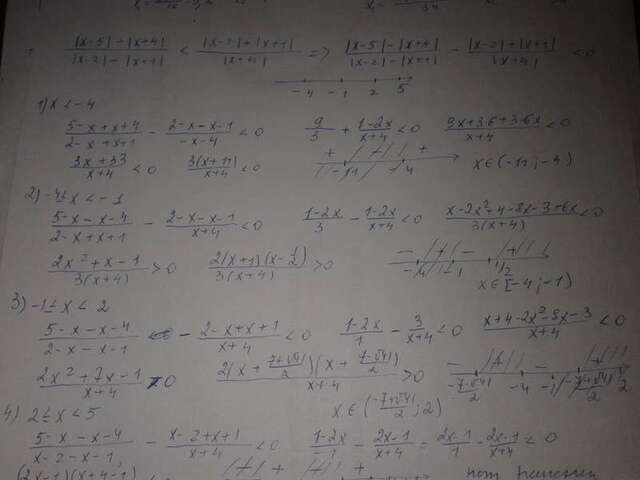 |x-5|-|x+4| / |x-2|-|x+1| < |x-2|+|x+1| / |x+4| => |x-5|-|x+4| / |x-2|-|x+1| - |x-2|+|x+1| / |x+4| < 0
-4 -1 2 5
1) x < -4
5-x+x+4 / 2-x+x+1 - 2-x-x-1 / -x-4 < 0 9/3 + 1-2x / x+4 < 0 9x+36+3-6x / x+4 < 0
3x+33 / x+4 < 0 3(x+11) / x+4 < 0 + - + -11 -4 x∈(-11;-4)
2) -4≤x<-1
5-x-x-4 / 2-x+x+1 - 2-x-x-1 / x+4 < 0 1-2x / 3 - 1-2x / x+4 < 0 x-2x²+4-8x-3+6x / 3(x+4) < 0
2x²+x-1 / 3(x+4) > 0 2(x+1)(x-1/2) / 3(x+4) > 0 - + - + -4 -1 1/2
x∈[-4;-1)
3) -1≤x<2
5-x-x-4 / 2-x-x-1 - 2-x+x+1 / x+4 < 0 1-2x / 1 - 3 / x+4 < 0 x+4-2x²-8x-3 / x+4 < 0
2x²+7x-1 / x+4 > 0 2(x+ 7+√41 / 2)(x+ 7-√41 / 2) / x+4 > 0 -7-√41 / 2 -4 -1 -7+√41 / 2 2
x∈(-7+√41 / 2 ; 2)
4) 2≤x<5
5-x-x-4 / x-2-x-1 - x-2+x+1 / x+4 < 0 1-2x / -1 - 2x-1 / x+4 = 2x-1 / 1 - 2x-1 / x+4 < 0
(2x-1)(x+4-1) нет решений